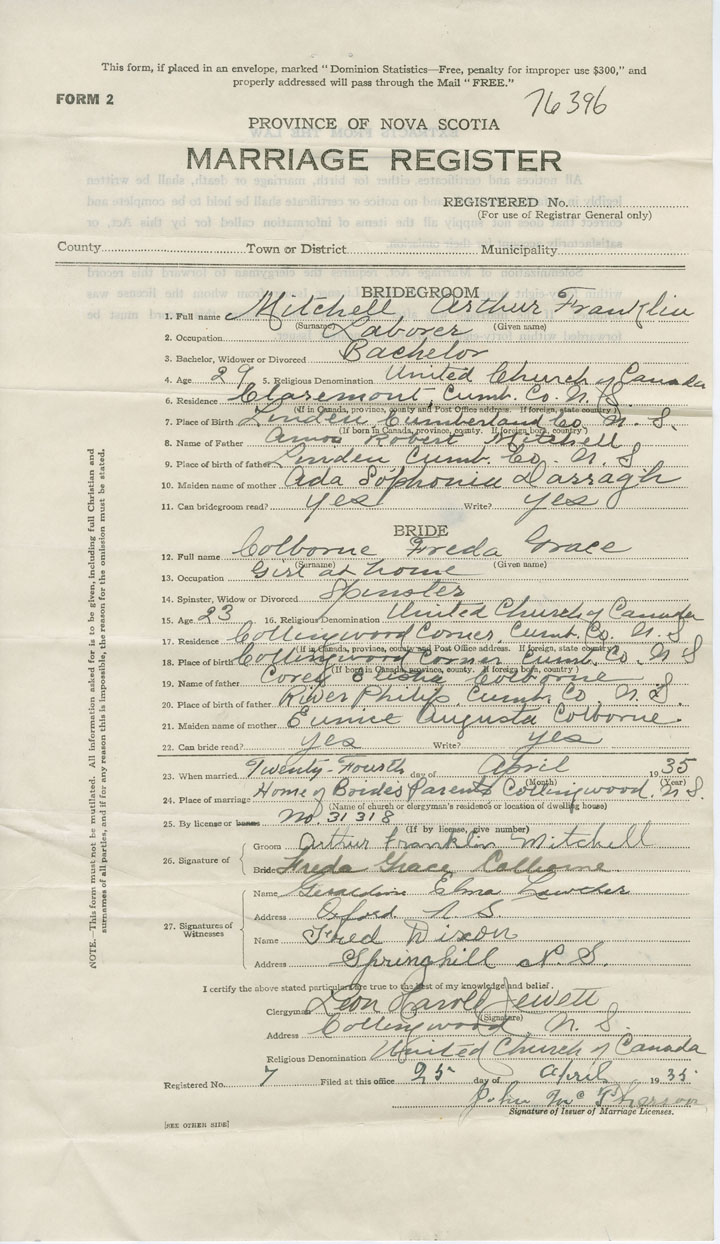 This form, if placed in an envelope, marked "Dominion Statistics—Free, penalty for improper use $300," and
properly addressed will pass through the Mail "FREE."
FORM 2
76396
PROVINCE OF NOVA SCOTIA
MARRIAGE REGISTER
REGISTERED No.
(For use of Registrar General only)
County Town or District Municipality
BRIDEGROOM
1. Full name Mitchell Arthur Franklin
(Surname) (Given name)
2. Occupation Laborer
3. Bachelor, Widower or Divorced Bachelor
4. Age 29 5. Religious Denomination United Church of Canada
6. Residence Claremont, Cumb. Co. N. S.
(If in Canada, province, county and Post Office address. If foreign, state country)
7. Place of Birth Linden Cumberland Co. N. S.
(If born in Canada, province, county. If foreign born, country)
8. Name of Father Amos Robert Mitchell
9. Place of birth of father Linden Cumb. Co. N. S
10. Maiden name of mother Ada Sophonia Darragh
11. Can bridegroom read? yes Write? yes
BRIDE
12. Full name Colborne Freda Grace
(Surname) (Given name)
13. Occupation Girl at home
14. Spinster, Widow or Divorced Spinster
15. Age 23 16. Religious Denomination United Church of Canada
17. Residence Collingwood Corner, Cumb. Co. N. S
(If in Canada, province, county and Post Office address. If foreign, state country)
18. Place of birth Collingwood Corner, Cumb. Co. N S
(If born in Canada, province, county. If foreign born, country)
19. Name of father Corey Elisha Colborne
20. Place of birth of father River Philip, Cumb. Co, N. S.
21. Maiden name of mother Eunice Augusta Colborne.
22. Can bride read? yes Write? yes
23. When married Twenty-Fourth day of April 1935
(Month) (Year)
24. Place of marriage Home of Brides Parents Collingwood. N. S.
(Name of church or clergyman's residence or location of dwelling house)
25. By license or banns No. 31318
(If by license, give number)
26. Signature of Groom Arthur Franklin Mitchell
Bride Freda Grace Colborne
27. Signatures of Witnesses
Name Elma
Address Oxford N. S.
Name Fred Dixon
Address Springhill N. S.
I certify the above stated particulars are true to the best of my knowledge and belief.
Clergyman Leon Harold Jewett
(Signature)
Address Collingwood N. S.
Religious Denomination United Church of Canada
Registered No. 7 Filed at this office 25 day of April 1935
John McPherson
Signature of Issuer of Marriage Licenses.
[SEE OTHER SIDE]
NOTE.—This form must not be mutilated. All information asked for is to be given, including full Christian and
surnames of all parties, and if for any reason this is impossible, the reason for the omission must be stated.